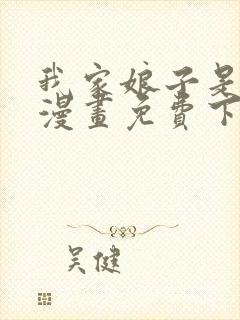 我家娘子是
漫畫免費下
吴健